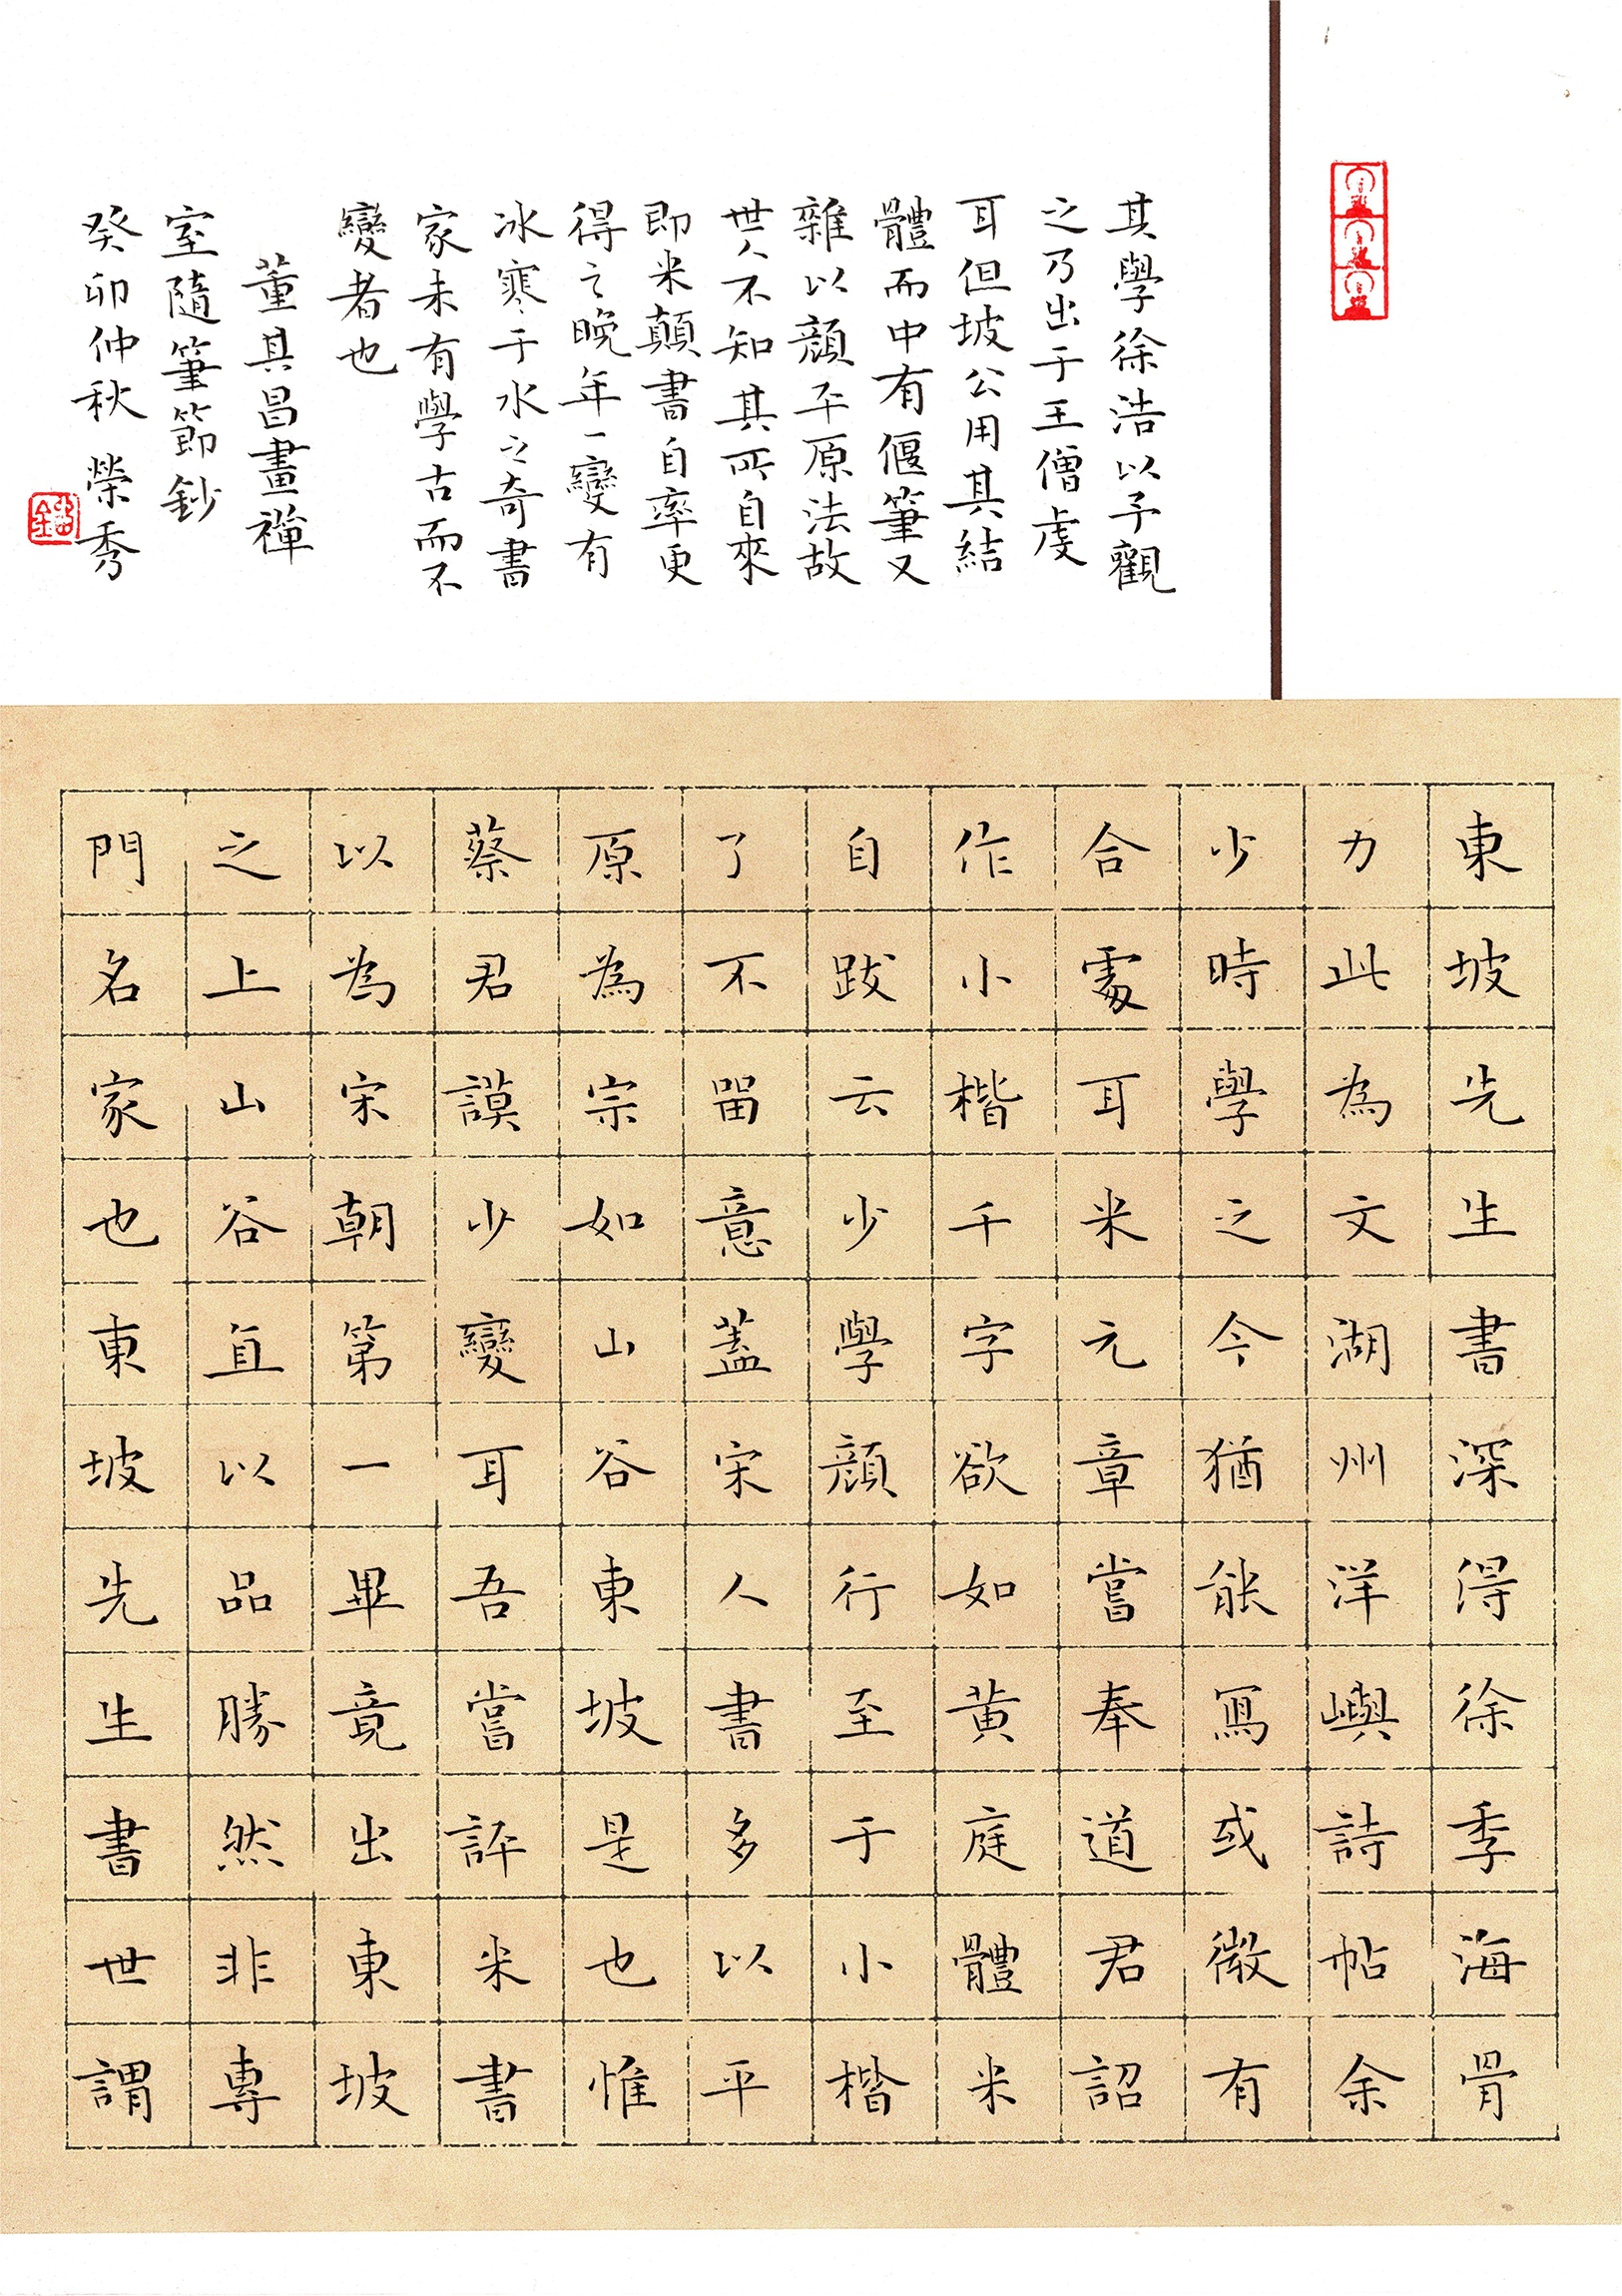 東坡先生書深得徐季海骨
力此為文湖州洋嶼詩帖余
少時學之今猶能寫或微有
合處耳米元章嘗奉道君詔
作小楷千字欲如黃庭體米
自跋云少學顏行至于小楷
了不留意蓋宋人書多以平
原為宗如山谷東坡是也惟
蔡君謨少變耳吾嘗評米書
以為宋朝第一畢竟出東坡
之上山谷直以品勝然非專
門名家也東坡先生書世謂
其學徐浩以予觀
之乃出于王僧虔
耳但坡公用其結
體而中有偃筆又
雜以顏平原法故
世人不知其所自來
即米顛書自率更
得之晚年一變有
冰寒于水之奇書
家未有學古而不
變者也
董其昌畫禪
室隨筆節鈔
癸卯仲秋 榮秀